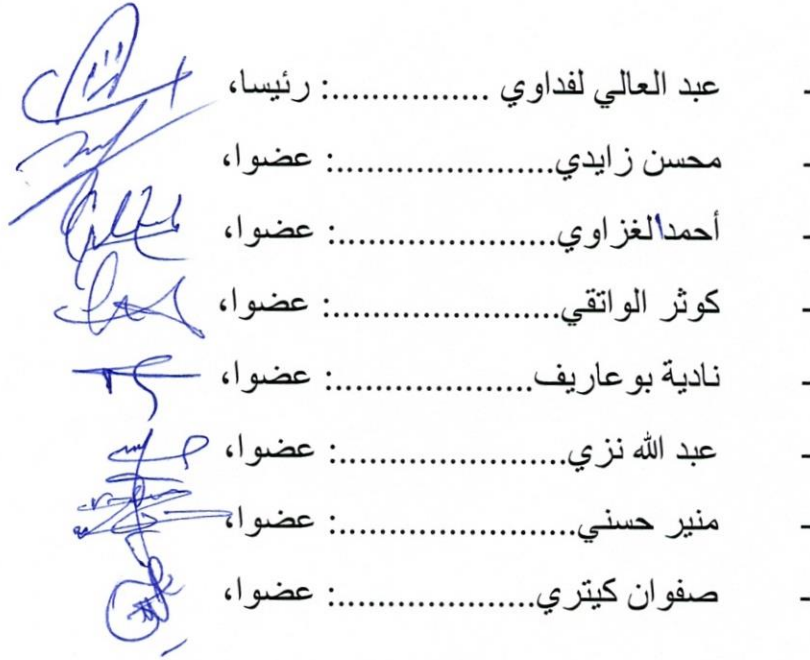 - عبد العالي لفداوي ................: رئيسا،
- محسن زايدي......................: عضوا،
- أحمد الغزاوي.....................: عضوا،
- كوثر الواتقي......................: عضوا،
- نادية بوعاريف...................: عضوا،
- عبد الله نزي......................: عضوا،
- منير حسني.......................: عضوا،
- صفوان كيتري...................: عضوا،